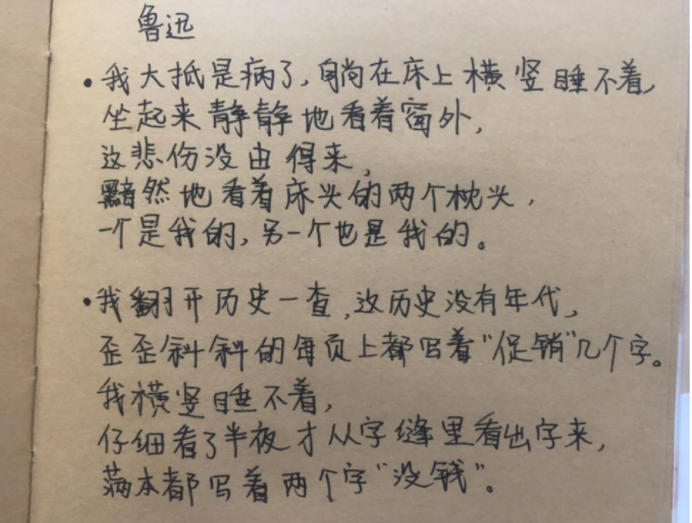 鲁迅
•我大抵是病了,躺在床上横竖睡不着,
坐起来静静地看着窗外,
这悲伤没由得来,
黯然地看着床头的两个枕头,
一个是我的,另一个也是我的。
•我翻开历史一查,这历史没有年代,
歪歪斜斜的每页上都写着“促销”几个字。
我横竖睡不着,
仔细看了半夜才从字缝里看出字来,
满本都写着两个字“没钱”。